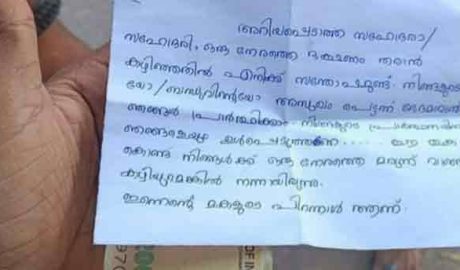 അറിയപ്പെടാത്ത സഹോദരാ/
സഹോദരി, ഒരു നേരത്തെ ഭക്ഷണം തരാൻ
കഴിഞ്ഞതിൽ എനിക്ക് സന്തോഷമുണ്ട്. നിങ്ങളുടെ
യോ/ബന്ധുവിന്റെയോ അസുഖം പെട്ടന്ന്
ഞങ്ങൾ പ്രാർത്ഥിക്കാം. നിങ്ങളുടെ
ഞങ്ങളെയും ഉൾപ്പെടുത്തണേ.... ഈ
കൊണ്ട് നിങ്ങൾക്ക് ഒരു നേരത്തെ മരുന്ന്
കഴിയുമെങ്കിൽ നന്നായിരുന്നു.
ഇന്നെന്റെ മകളുടെ പിറന്നാൾ ആണ്.